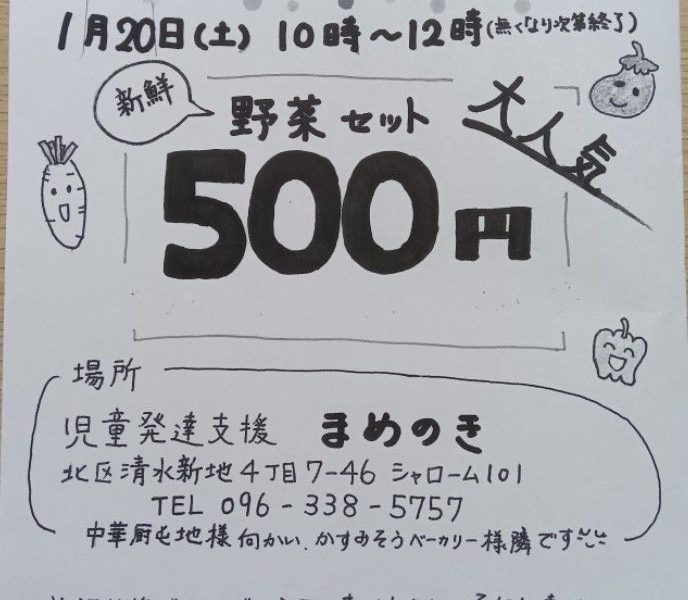 1月20日(土) 10時〜12時(無くなり次第終了)
新鮮
野菜セット
大人気
500円
場所
児童発達支援 まめのき
北区清水新地4丁目7-46 シャローム101
TEL 096-338-5757
中華厨屯地様向かい、かすみそうベーカリー様隣です